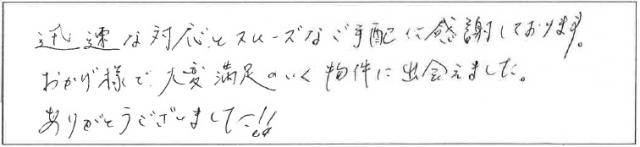 迅速な対応とスムーズなご手配に感謝しております。
おかげ様で、大変満足のいく物件に出会えました。
ありがとうございました!!